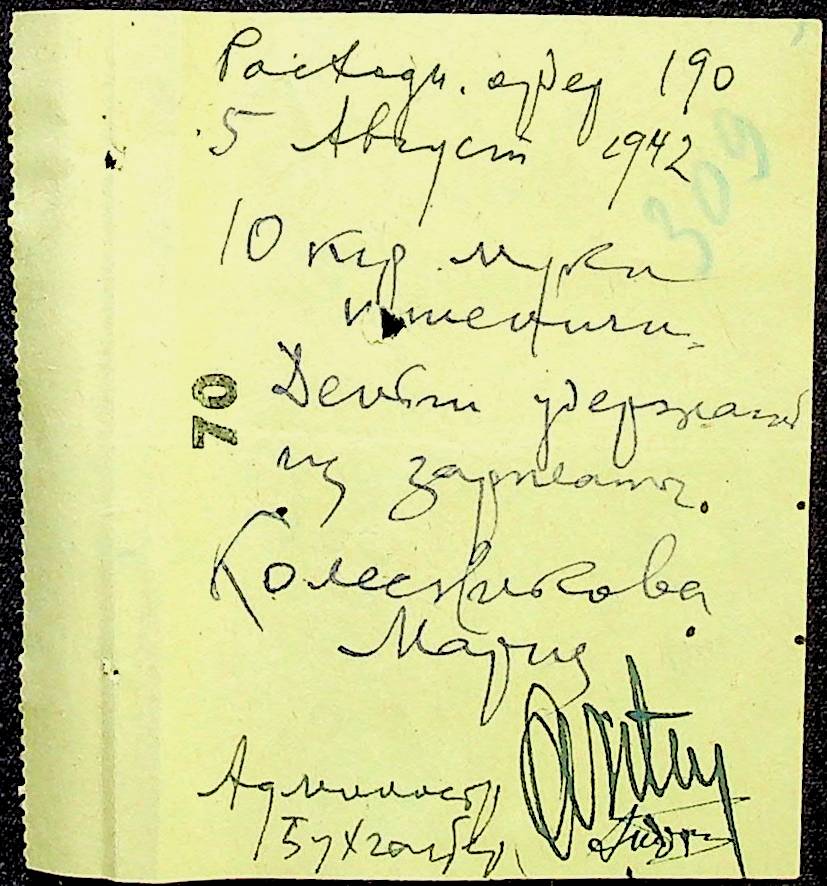 Расходн. ордер 190
5 Август 1942
309
10 кгр муки
пшенични.
70
Деньги удержаны
из зарплаты.
Колесникова
Мария
Администр
Бухгалтер